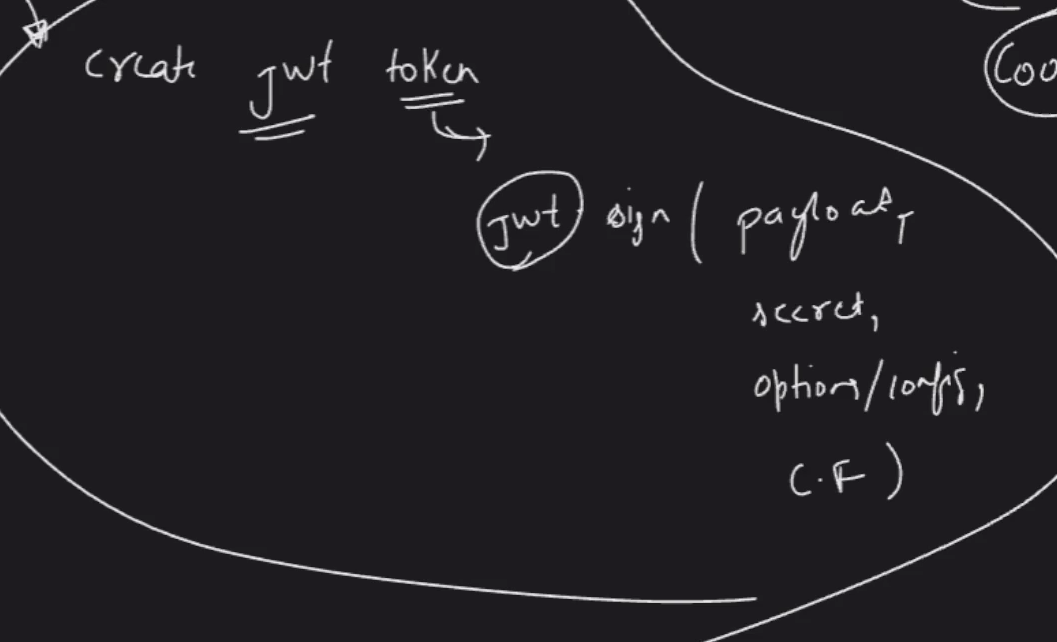 create jwt token
Coo
jwt sign ( payload,
secret,
options/config,
C.F )